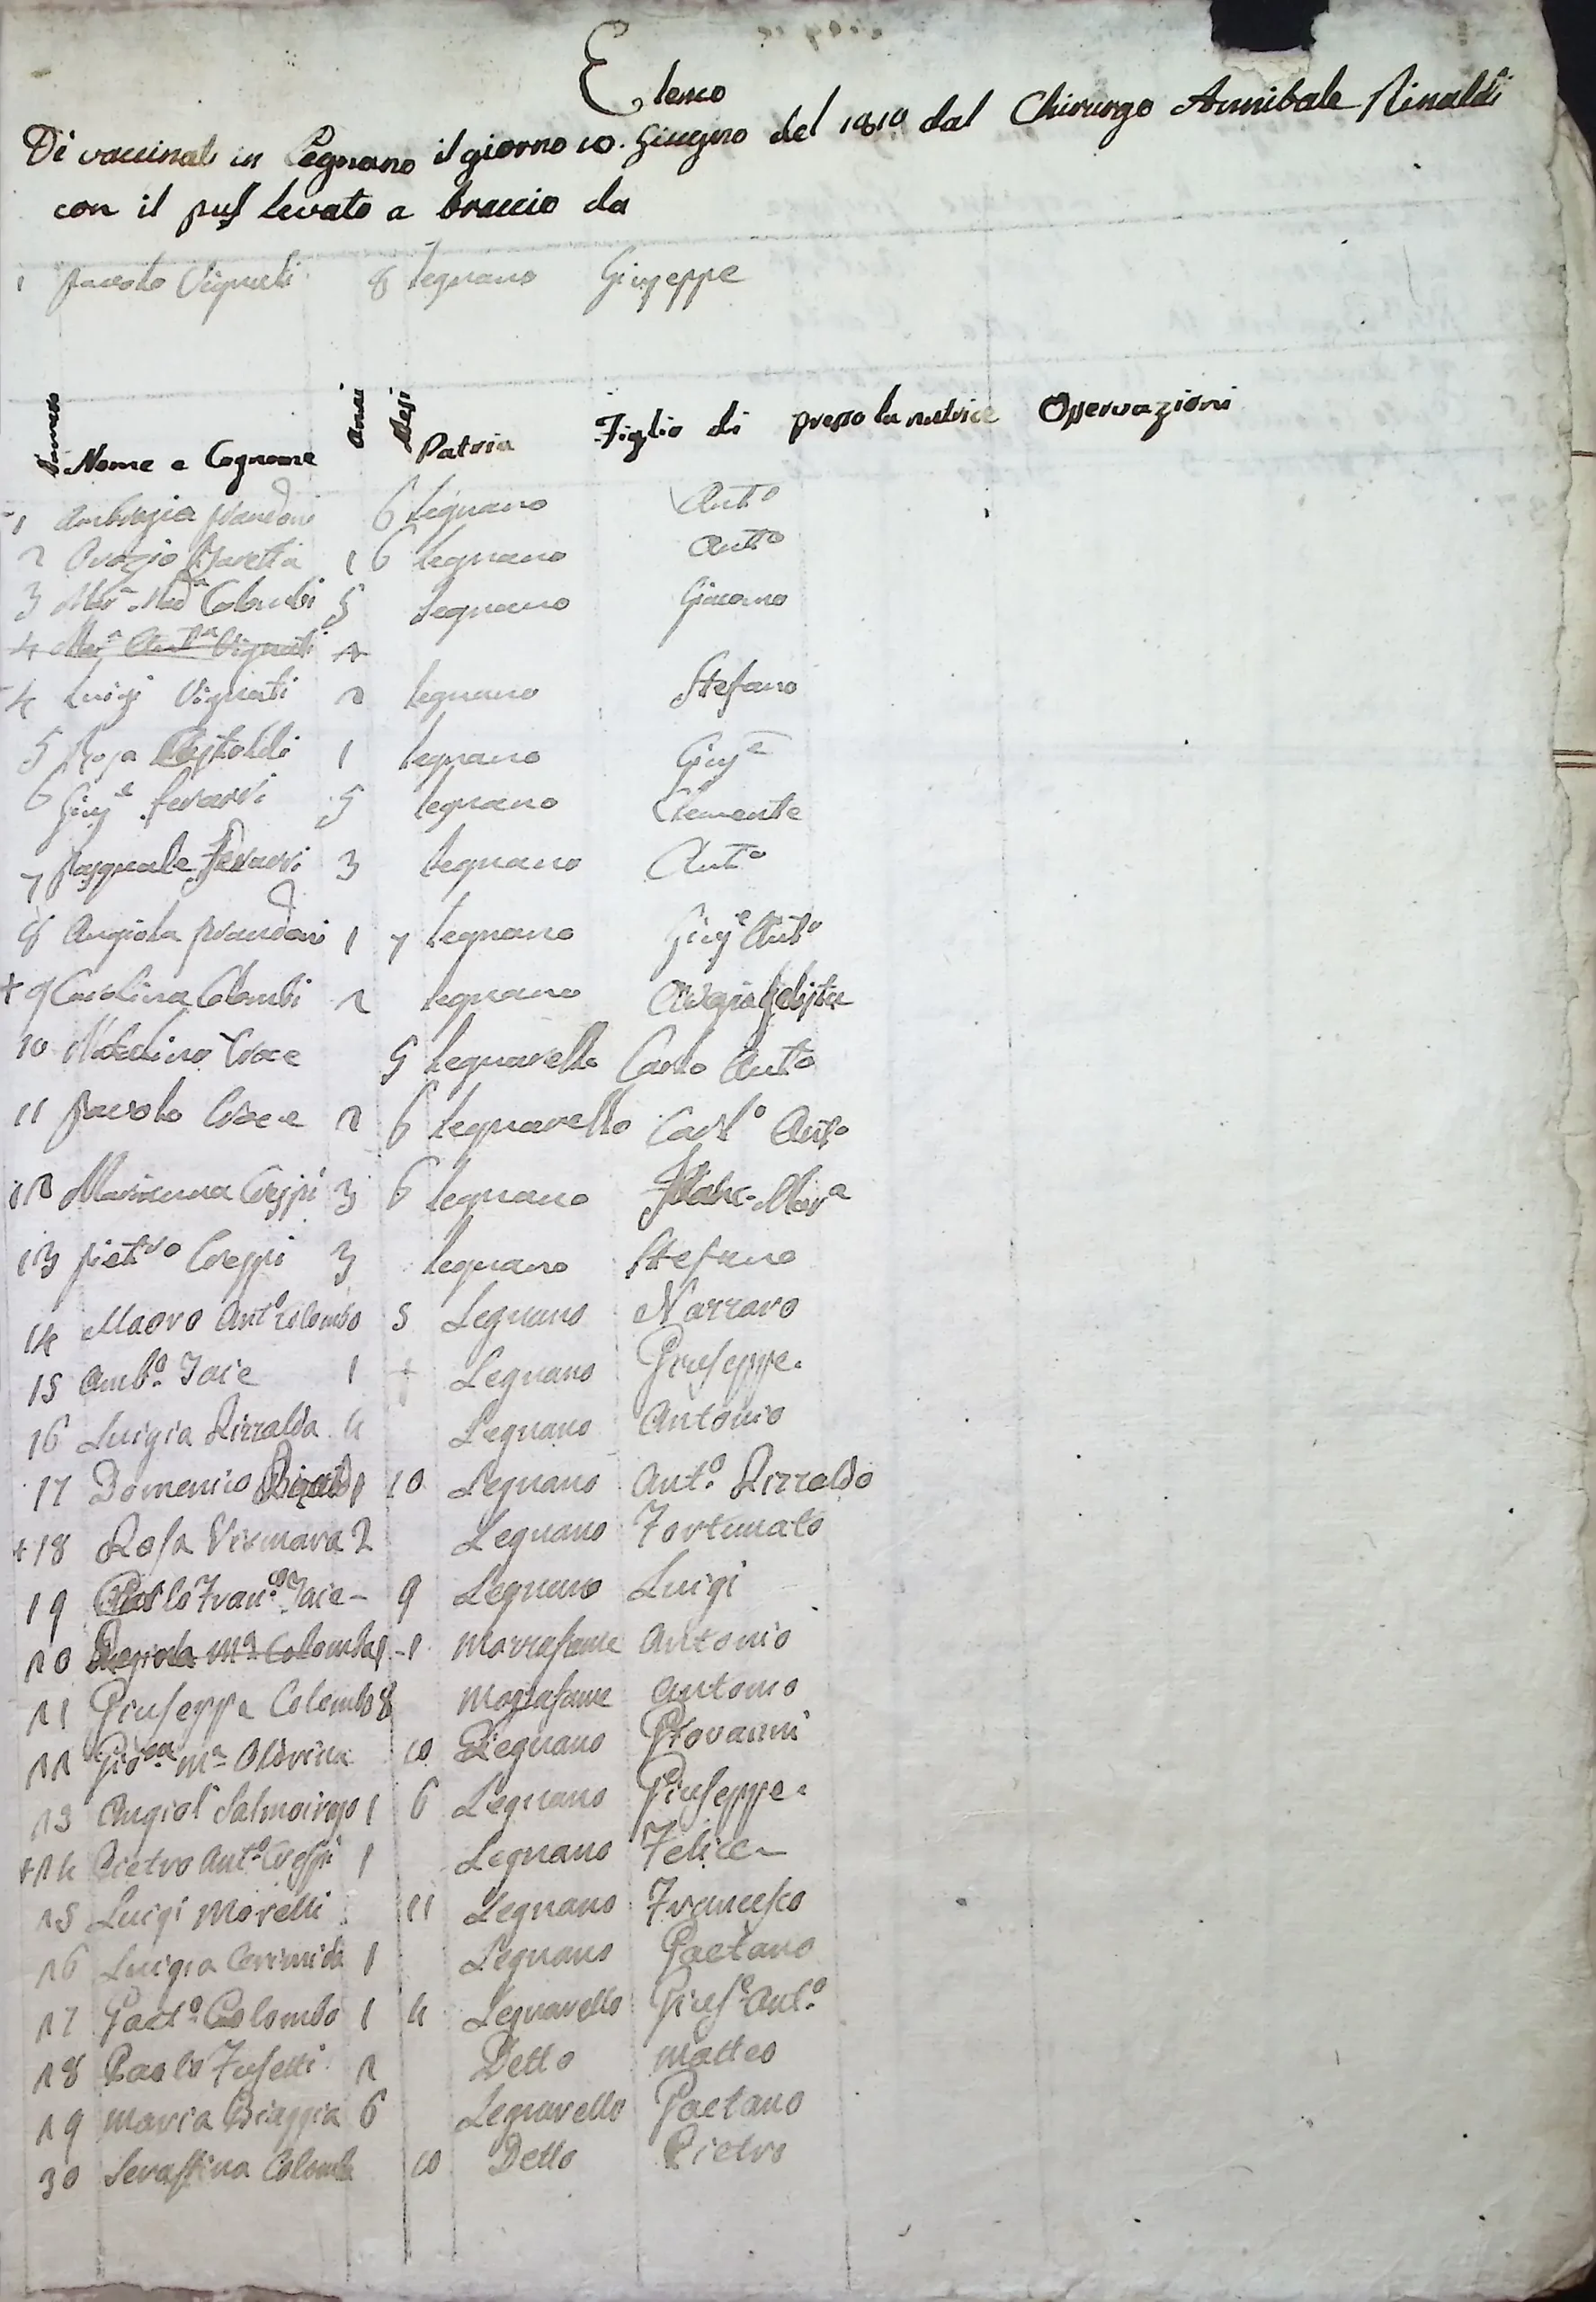 Elenco
Di vaccinati in Legnano il giorno 10. Giugno del 1810 dal Chirurgo Annibale Rinaldi
con il pus levato a braccio da
1 Paolo Vignati 8 Legnano Giuseppe
Numero Nome e Cognome Anni Mesi Patria Figlio di presso la nutrice Osservazioni
1 Ambrogia Prandoni 6 Legnano Antº
2 Orazio 1 6 Legnano Antº
3 Marª Madª Colombi 5 Legnano Giacomo
4 Marª Antª Vignati 4
4 Luigi Vignati 2 Legnano Stefano
5 Rosa Castoldi 1 Legnano Giusᵉ
6 Giusᵉ Ferarri 5 Legnano Clemente
7 Pasquale Ferarri 3 Legnano Antº
8 Angiola Prandoni 1 7 Legnano Giusᵉ Antº
+ 9 Carolina Colombi 2 Legnano
10 Croce 5 Legnarello Carlo Antº
11 Paolo Croce 2 6 Legnarello Carlº Antº
12 Marianna Crespi 3 6 Legnano Marª
13 Pietro Crespi 3 Legnano Stefano
14 Mauro Antº Colombo 5 Legnano Nazzaro
15 Ambº. Jace 1 Legnano Giuseppe.
16 Luigia Rizzalda 4 Legnano Antonio
17 Domenico 10 Legnano Antº. Rizzaldo
+ 18 Rosa Vismara 2 Legnano Fortunato
19 Carlo Francº. Jace - 9 Legnano Luigi
20 Mª Colomba - 1 Mazzafame Antonio
21 Giuseppe Colombo 8 Mazzafame Antonio
22 Gioᵛⁿᵃ Mª Oldrina 10 Legnano Giovanni
23 Angiol Salmoirago 1 6 Legnano Giuseppe.
+ 24 Pietro Antº. Crespi 1 Legnano Felice
25 Luigi Morelli 11 Legnano Francesco
26 Luigia Cerimida 1 Legnano Gaetano
27 Gaetº. Colombo 1 4 Legnarello Giusᵉ. Antº.
28 Paolo Fusetti 2 Detto Matteo
29 Maria Biaggia 6 Legnarello Gaetano
30 Seraffina Colomba 10 Detto Pietro